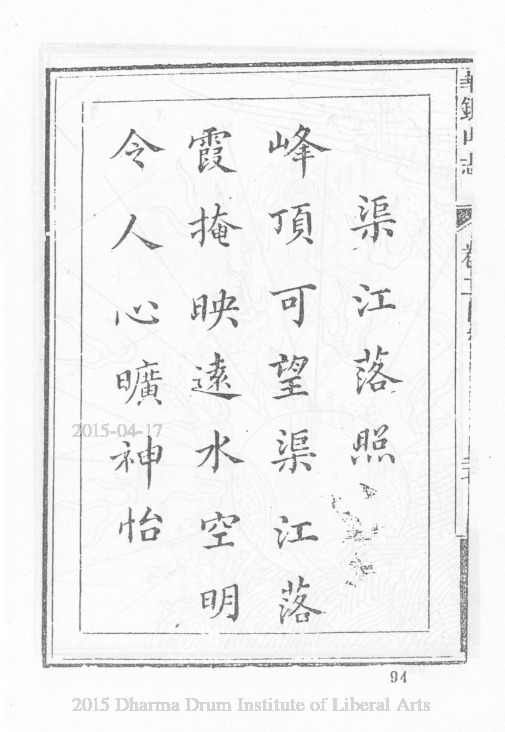 渠江落照
峰頂可望渠江落
霞掩映遠水空明
令人心曠神怡
華鎣山志
94
2015-04-17
2015 Dharma Drum Institute of Liberal Arts